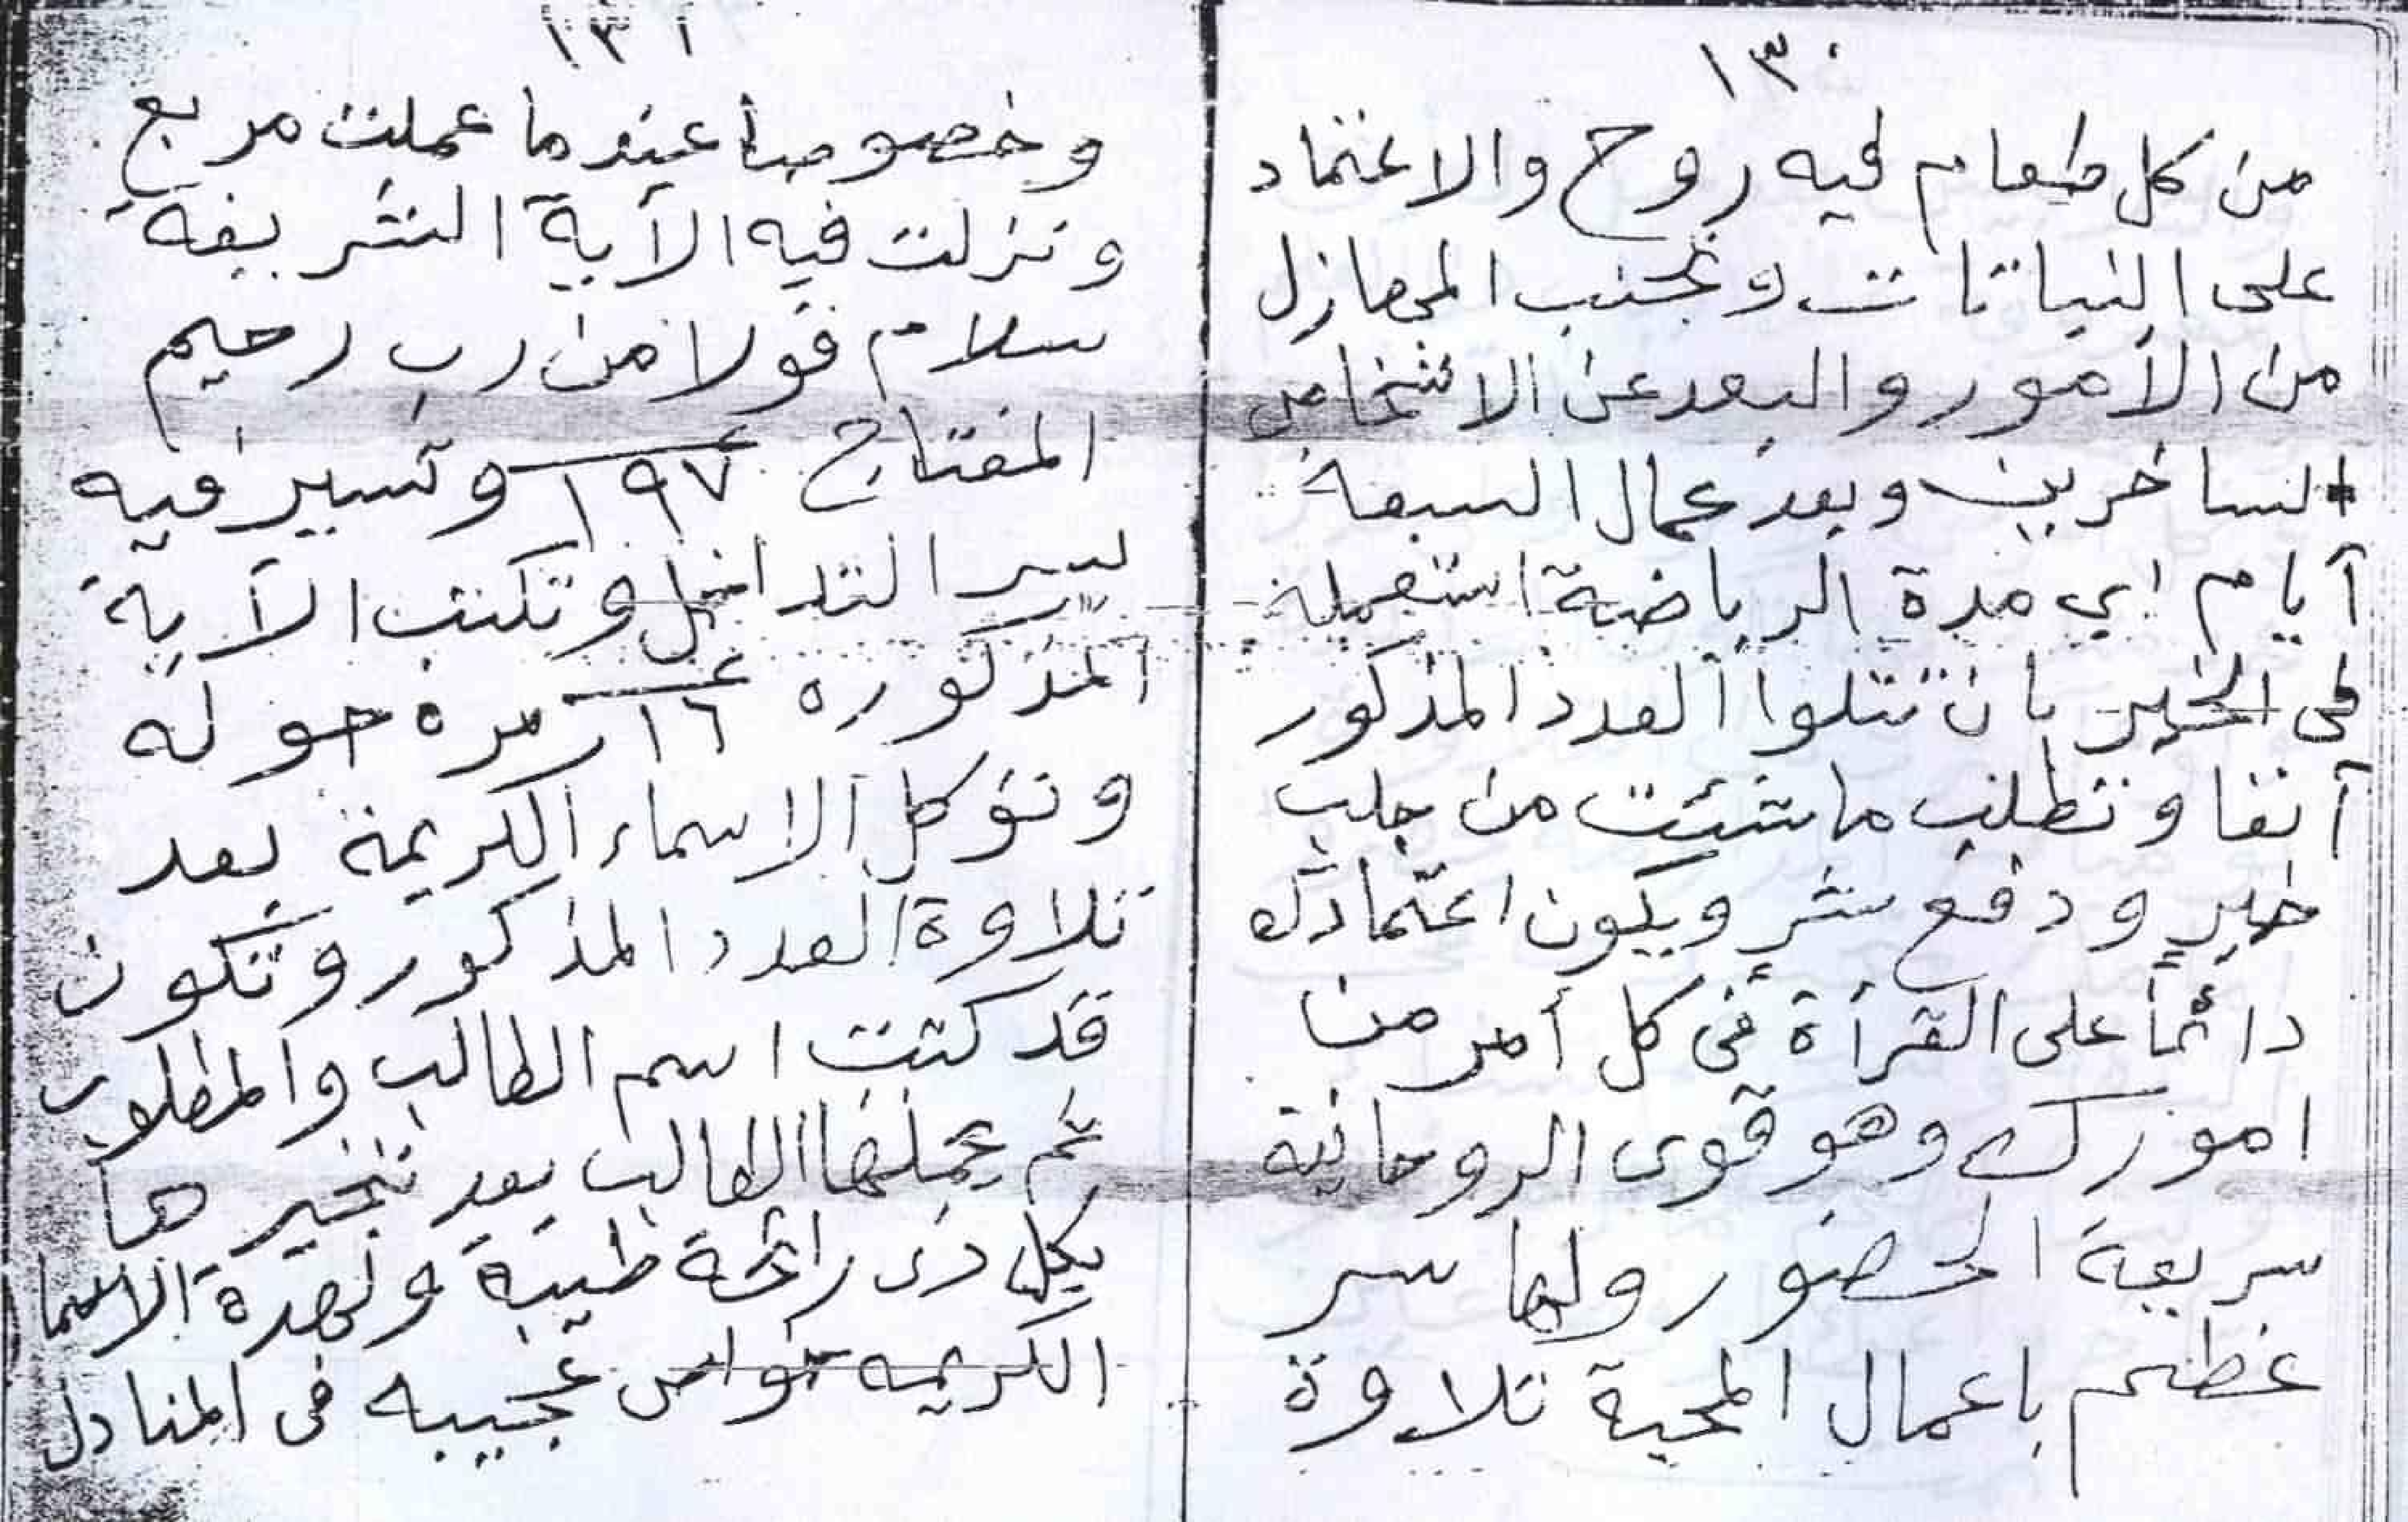 ١٣٠
من كل طعام فيه روح والاعتماد
على النباتات وتجنب المهازل
من الأمور والبعد عن الاشخاص
الساخرين وبعد عمال السبعة
آيام اي مدة الرياضة استعمله
في الخير بان تتلوا العدد المذكور
آنفا وتطلب ما شئت من جلب
خيرٍ ودفع شرٍ ويكون اعتمادك
دائماً على القرآة في كل أمر من
امورك وهو قوى الروحانية
سريعة الحضور ولها سر
عظيم باعمال المحبة تلاوة
١٣١
وخصوصا عندما عملت مربع
ونزلت فيه الآية الشريفة
سلام قولا من رب رحيم
المفتاح ١٩٧ وتسير فيه
سير التداخل وتكتب الآية
المذكوره ١٦ مره حوله
وتوكل الاسماء الكريمة بعد
تلاوة العدد المذكور وتكون
قد كتبت اسم الطالب والمطلوب
ثم يحملها الطالب بعد تبخيرها
بكل ذى رائحة طيبة ولهدة الاسما
الكريمه خواص عجيبه فى المنادل